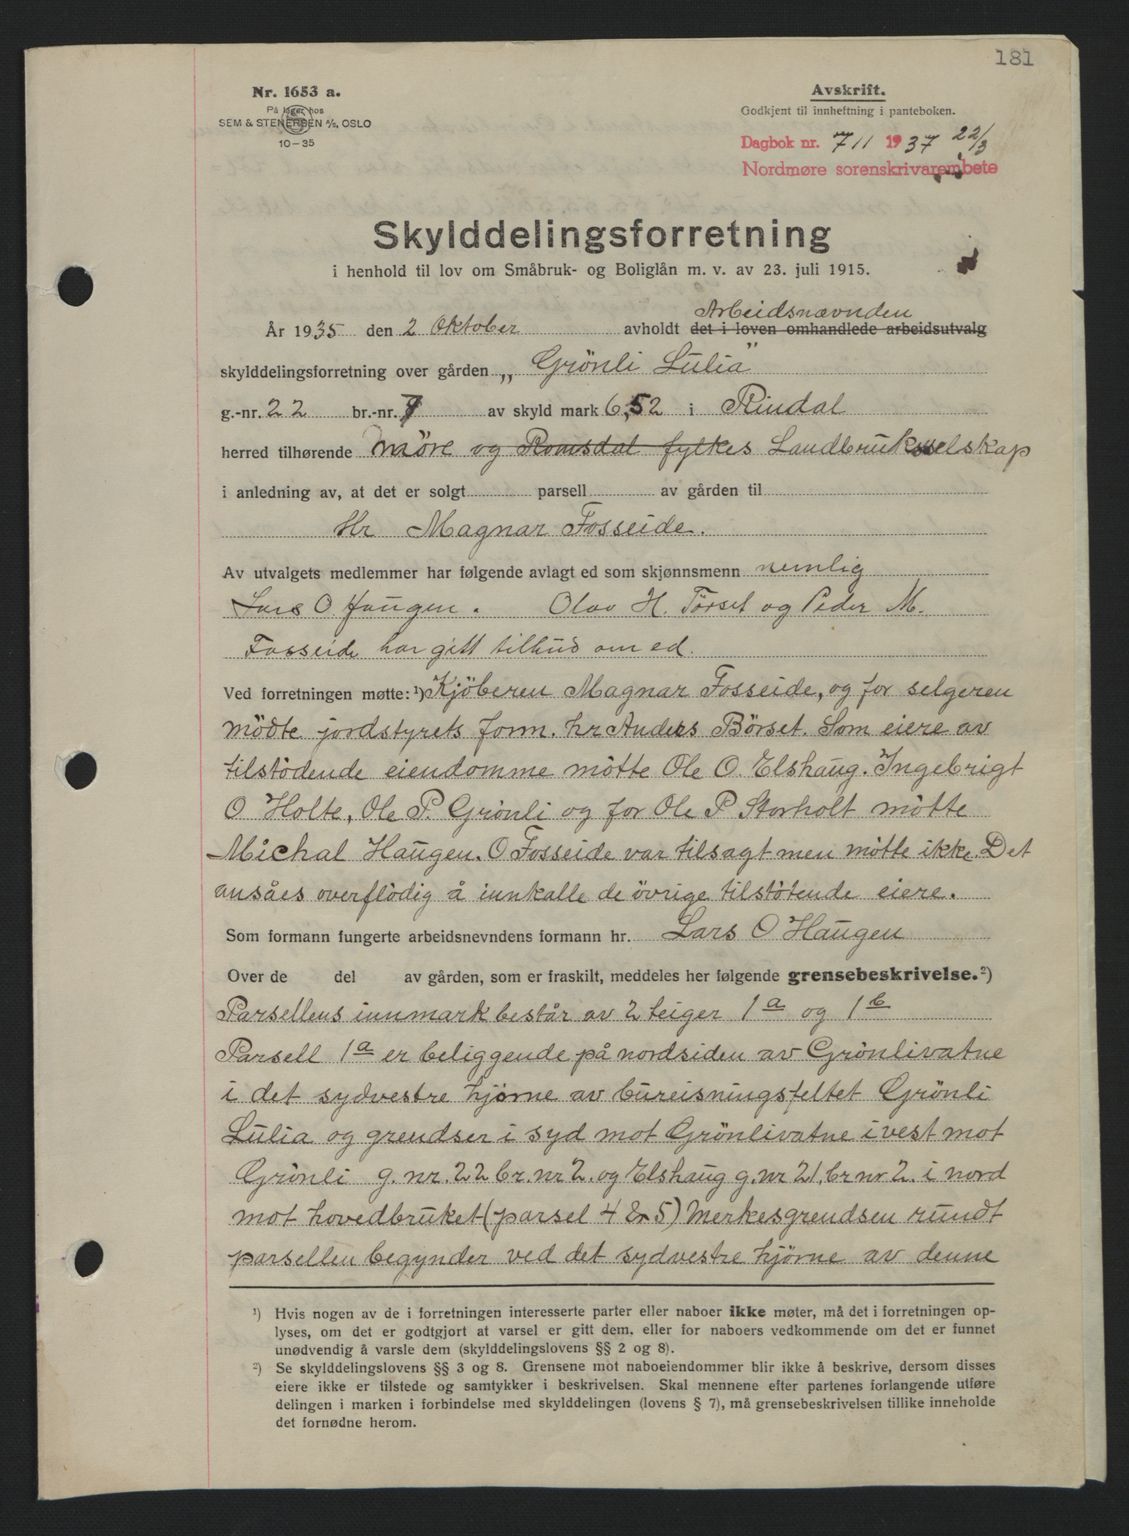 181
Nr. 1653 a.
På lager hos
SEM & STENERSEN A/S, OSLO
10-35
Avskrift.
Godkjent til innheftning i panteboken.
Dagbok nr. 711 1937 22/3
Nordmøre sorenskrivarembete
Skylddelingsforretning
i henhold til lov om Småbruk- og Boliglån m. v. av 23. juli 1915.
Arbeidsnævnden
År 1935 den 2 Oktober avholdt det i loven omhandlede arbeidsutvalg
skylddelingsforretning over gården „Grönli Lulia"
g.-nr. 22 br.-nr. 9 av skyld mark 6,52 i Rindal
herred tilhørende Møre og Romsdal fylkes Landbruksselskap
i anledning av, at det er solgt parsell av gården til
Hr Magnar Fosseide.
Av utvalgets medlemmer har følgende avlagt ed som skjønnsmenn nemlig
Lars O. Haugen. Olav H. Törset og Peder M.
Fosseide har gitt tilbud om ed.
Ved forretningen møtte: ¹) Kjöberen Magnar Fosseide, og for selgeren
mödte jordstyrets form. hr Anders Börset. Som eiere av
tilstödende eiendomme mötte Ole O. Elshaug. Ingebrigt
O Holte, Ole P. Grönli og for Ole P Storholt mötte
Michal Haugen. O Fosseide var tilsagt men mötte ikke. Det
ansåes overflödig å innkalle de övrige tilstötende eiere.
Som formann fungerte arbeidsnevndens formann hr. Lars O Haugen
Over de del av gården, som er fraskilt, meddeles her følgende grensebeskrivelse.²)
Parsellens innmark består av 2 teiger 1a og 1b
Parsell 1a er beliggende på nordsiden av Grönlivatne
i det sydvestre hjørne av bureisningsfeltet Grönli
Lulia og grendser i syd mot Grönlivatne i vest mot
Grönli g. nr. 22 br. nr 2. og Elshaug g. nr 21, br nr 2. i nord
mot hovedbruket (parsel 4 & 5) Merkesgrendsen rundt
parsellen begynder ved det sydvestre hjørne av denne
¹) Hvis nogen av de i forretningen interesserte parter eller naboer ikke møter, må det i forretningen op-
lyses, om det er godtgjort at varsel er gitt dem, eller for naboers vedkommende om det er funnet
unødvendig å varsle dem (skylddelingslovens §§ 2 og 8).
²) Se skylddelingslovens §§ 3 og 8. Grensene mot naboeiendommer blir ikke å beskrive, dersom disses
eiere ikke er tilstede og samtykker i beskrivelsen. Skal mennene efter partenes forlangende utføre
delingen i marken i forbindelse med skylddelingen (lovens § 7), må grensebeskrivelsen tillike inneholde
det fornødne herom.